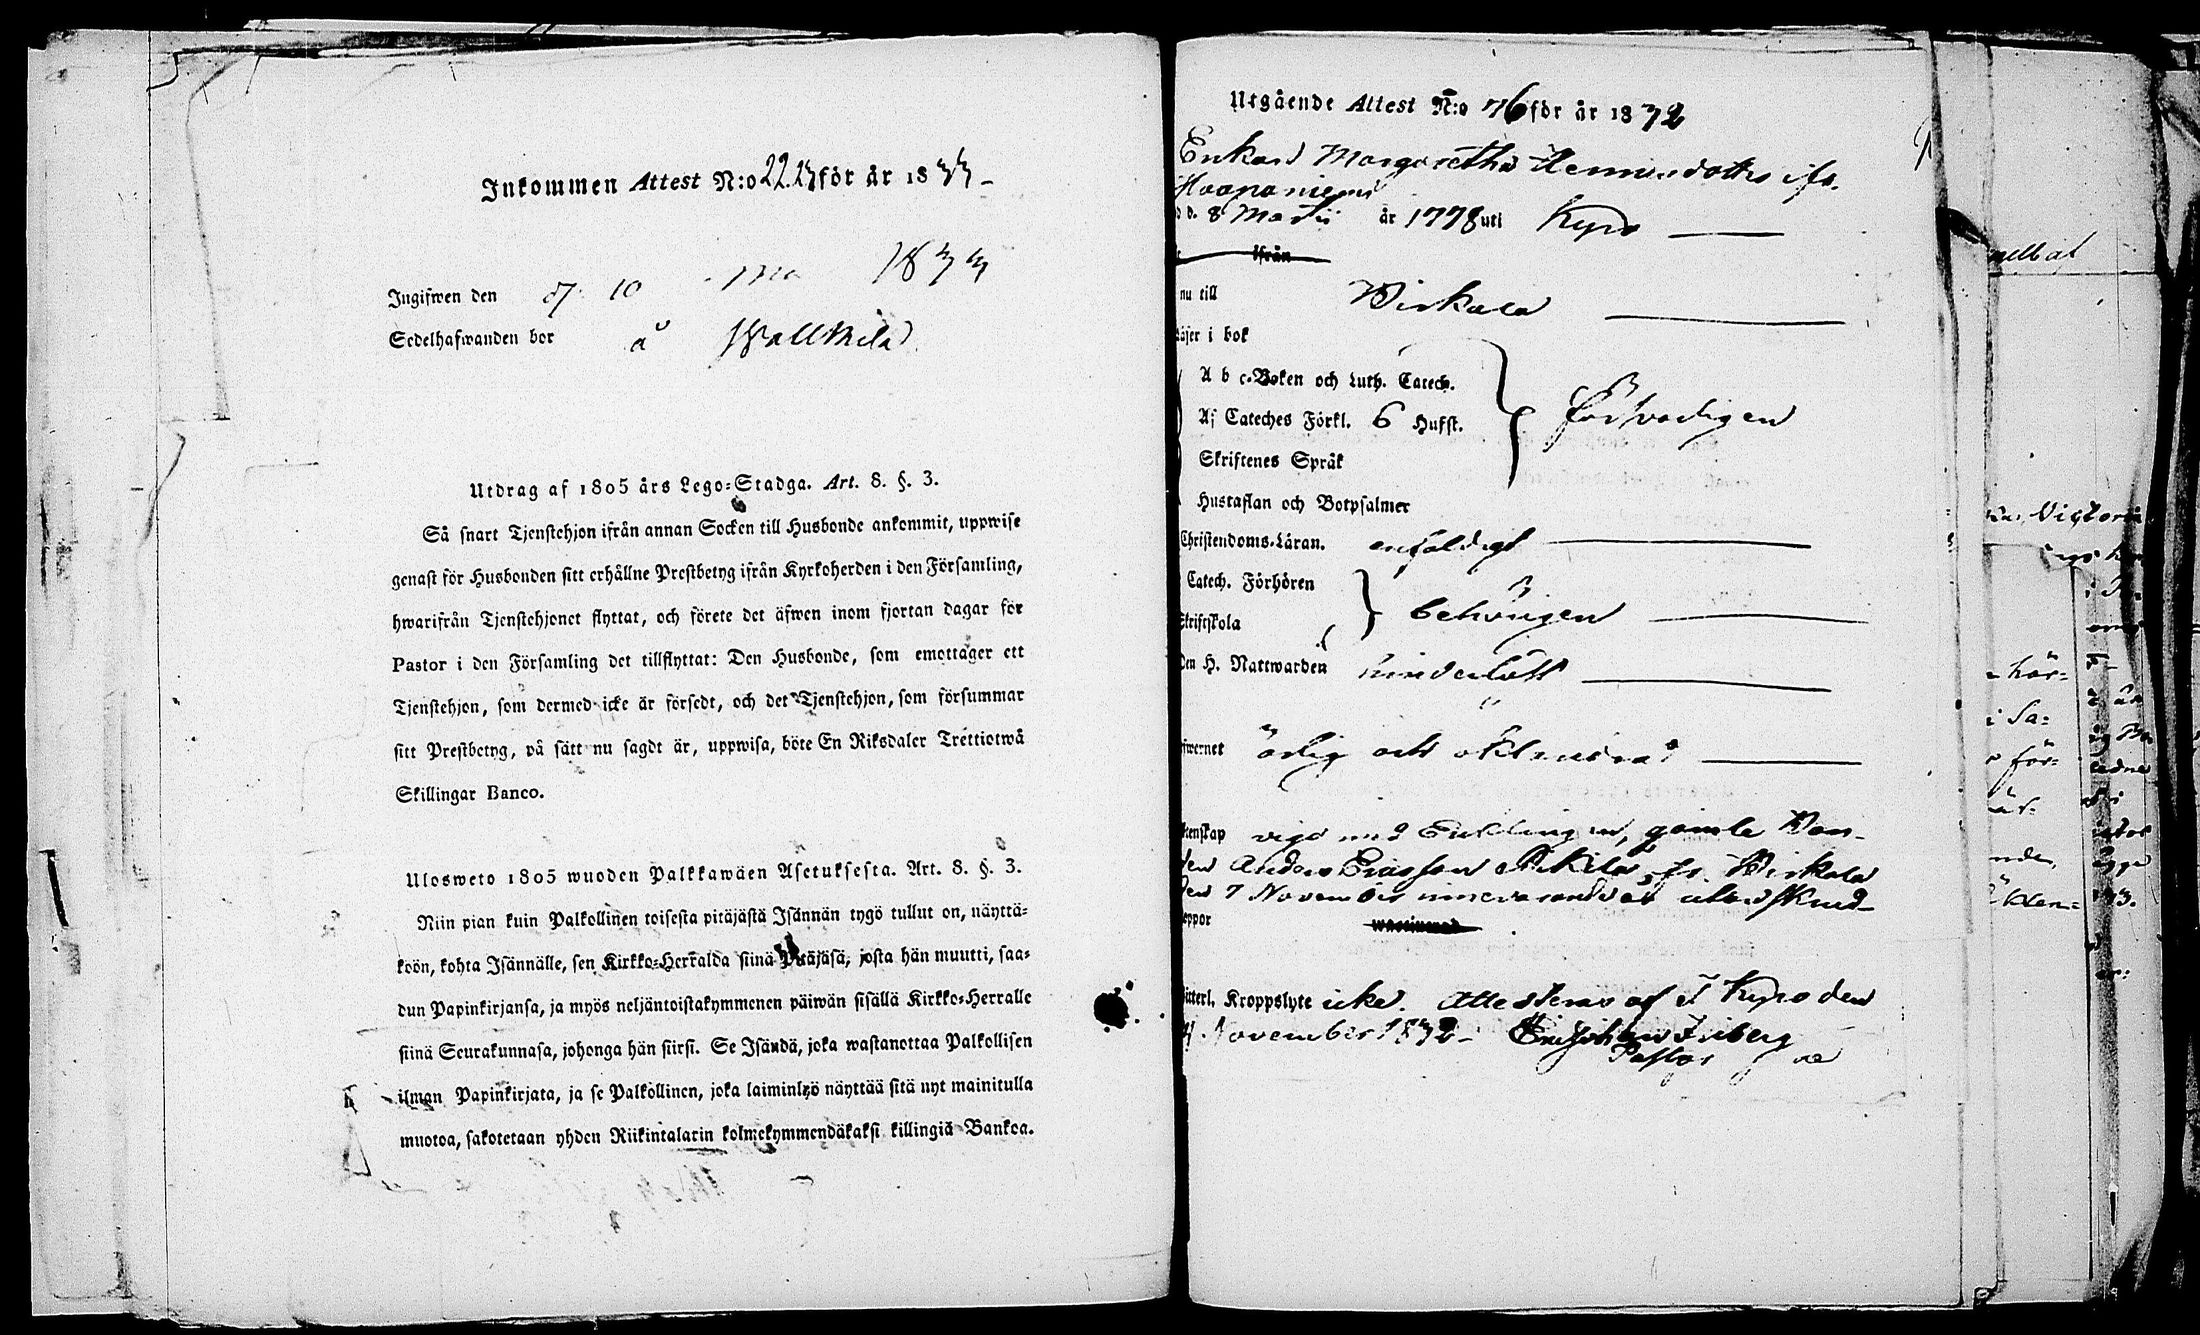 Inkommen Attest N:o 22.23 för år 1833 –
Ingifwen den 10 1833
Sedelhafwanden bor å
Utdrag af 1805 års Lego-Stadga. Art. 8. §. 3.
Så snart Tjenstehjon ifrån annan Socken till Husbonde ankommit, uppwise
genast för Husbonden sitt erhållne Prestbetyg ifrån Kyrkoherden i den Församling,
hwarifrån Tjenstehjonet flyttat, och förete det äfwen inom fjortan dagar för
Pastor i den Församling det tillflyttat: Den Husbonde, som emottager ett
Tjenstehjon, som dermed icke är försedt, och det Tjenstehjon, som försummar
sitt Prestbetyg, på sätt nu sagdt är, uppwisa, böte En Riksdaler Trettiotwå
Skillingar Banco.
Ulosweto 1805 wuoden Palkkawäen Asetuksesta. Art. 8. §. 3.
Niin pian kuin Palkollinen toisesta pitäjästä Isännän tygö tullut on, näyttä-
köön, kohta Isännälle, sen Kirkko-Herralda siinä Pitäjäsä, josta hän muutti, saa-
dun Papinkirjansa, ja myös neljäntoistakymmenen päiwän sisällä Kirkko-Herralle
siinä Seurakunnasa, johonga hän siirsi. Se Isändä, joka wastanottaa Palkollisen
ilman Papinkirjata, ja se Palkollinen, joka laiminlyö näyttää sitä nyt mainitulla
muotoa, sakotetaan yhden Riikintalarin kolmekymmendäkaksi killingiä Bankoa.
Utgående Attest N:o 76 för år 1832
Enkan Margaretha Henricsdotter ifr.
Haapaniemi
d. 8 Martii år 1778 uti Kyro
ifrån
nu till Wirkala
läser i bok
A b c-Boken och Luth. Catech.
Af Cateches Förkl. 6 Hufst. försvarligen
Skriftenes Språk
Hustaflan och Botpsalmer
Christendoms-Läran. enfaldigt
Catech. Förhören
Skriftskola behörigen
den H. Nattwarden hinderlöst
fwernet ärlig och oklandrad
tenskap vigd med Enklingen, gamle Bon-
den Anders Ersson Mikila fr. Wirkala
den 7 November innevarande år utan skrid-
oppor wac
itterl. Kroppslyte icke. Attesteras af I Kyro den
November 1832 – Eric Johan Friberg
Pastor
nellat
Victoria
hör-
i Sa-
för-
är-